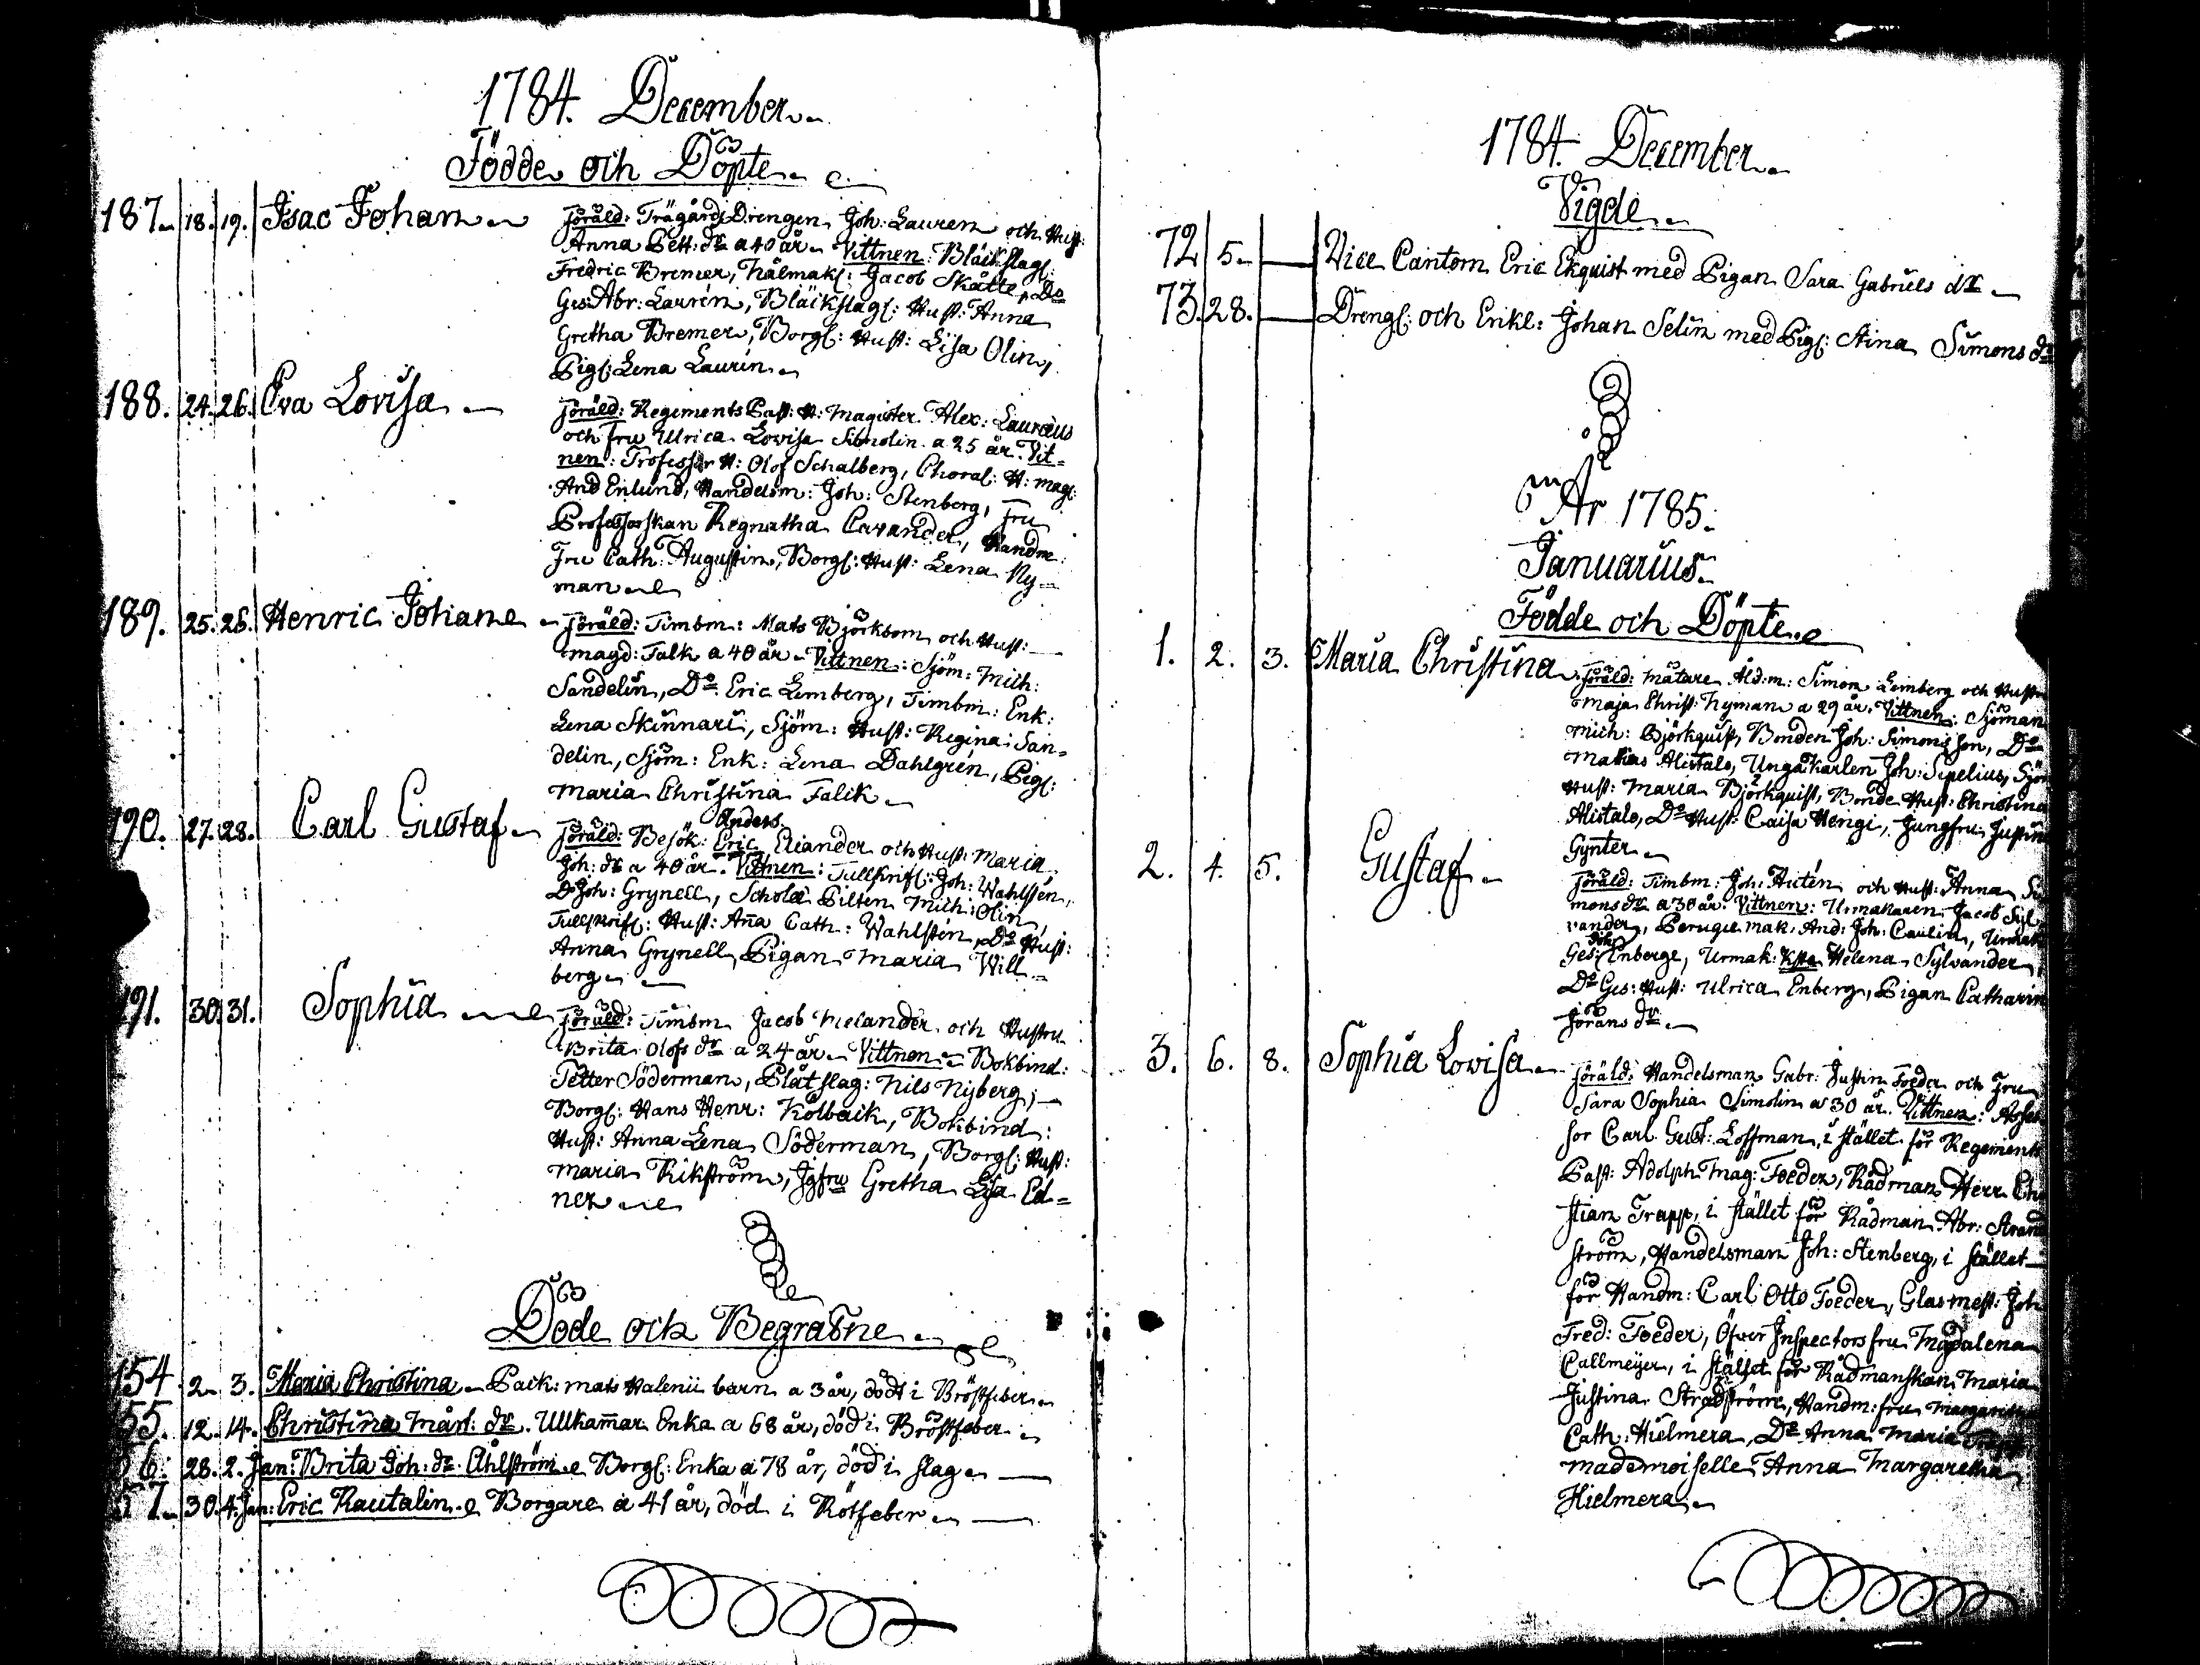 1784. December
Födde och Döpte
187. 18. 19. Isac Johan Föräld: Trägårds Drengen Joh: Lauren och Hust:
Anna Pett: dr a 40 år. Vittnen: Bläckslag:
Fredric Bremer, Hålmak: Jacob Skätte, Do
Ges: Abr: Laurén, Bläckslag: Hust: Anna
Gretha Bremer, Borg: Hust: Lisa Olin,
Pig: Lena Laurin
188. 24. 26. Eva Lovisa Föräld: Regements Past: H: Magister Alex: Lauræus
och fru Ulrica Lovisa Simolin a 25 år. Vit=
nen: Professor H: Olof Schalberg, Choral: H: mag:
And Enlund, Handelsm: Joh: Stenberg, Fru
Professorskan Regnatha Cavander, Handm:
Fru Cath: Augustin, Borg: Hust: Lena Ny=
man
189. 25. 26. Henric Johan Föräld: Timbm: Mats Björkbom och Hust:
Magd: Falk a 40 år. Vittnen: Sjöm: Mich:
Sandelin, Do Eric Lemberg, Timbm: Enk:
Lena Skinnari, Sjöm: Hust: Regina San=
delin, Sjöm: Enk: Lena Dahlgrén, Pig:
Maria Christina Falck
Anders
190. 27. 28. Carl Gustaf Föräld: Besök: Eric Eliander och Hust: Maria
Joh: dr a 40 år. Vittnen: Tullskrif: Joh: Wahlstén,
Do Joh: Grynell, Scholæ Pilten Mich: Olin
Tullskrif: Hust: Anna Cath: Wahlstén, Do Hust:
Anna Grynell, Pigan Maria Will=
berg
191. 30. 31. Sophia Föräld: Timbm Jacob Melander och Hustru
Brita Olofs dr a 24 år. Vittnen: Bokbind:
Petter Söderman, Plåtslag: Nils Nyberg,
Borg: Hans Henr: Kolbäck, Bokbind:
Hust: Anna Lena Söderman, Borg: Hust:
Maria Rikström, Jgfru Gretha Lisa Ed=
ner
Döde och Begrafne
154 2. 3. Maria Christina Pack: Mats Halenii barn a 3 år, död i Bröstfeber
55. 12. 14. Christina Mårt: dr. Ullkammar Enka a 68 år, död i Bröstfeber
56. 28. 2. Jan: Brita Joh: dr Åhlström Borg: Enka a 78 år, död i slag
57. 30. 4. Jan: Eric Rautalin Borgare a 41 år, död i Rötfeber
1784. December
Vigde
72 5. Vice Cantorn Eric Ekquist med Pigan Sara Gabriels dr
73. 28. Dreng: och Enkl: Johan Selin med Pig: Stina Simons dr
År 1785.
Januarius
Födde och Döpte
1. 2. 3. Maria Christina Föräld: Mätare Åld:m: Simon Lemberg och Hustru
Maja Christ: Nyman a 29 år. Vittnen: Sjöman
Mich: Björkquist, Bonden Joh: Simonsson, Do
Mathias Alistalo, Unga Karlen Joh: Sipelius, Sjöm
Hust: Maria Björkquist, Bonde Hust: Christina
Alistalo, Do Hust: Caisa Hengi, Jungfru Justin
Gynter
2. 4. 5. Gustaf Föräld: Timbm: Joh: Autén och Hust: Anna Si
mons dr a 30 år. Vittnen: Urmakaren Jacob Syl
vander, Peruque mak: And: Joh: Caulin, Urmak
Ges: Enberg, Urmak: Helena Sylvander,
Do Ges: Hust: Ulrica Enberg, Pigan Catharin
Jörans dr
3. 6. 8. Sophia Lovisa Föräld: Handelsman Gabr: Justin Foeder och Fru
Sara Sophia Simolin a 30 år. Vittnen: Asses
sor Carl Gust: Loffman, i stället för Regements
Past: Adolph Mag: Foeder, Rådman Herr Chri
stian Trapp, i stället för Rådman Abr: Strand
ström, Handelsman Joh: Stenberg, i stället
för Handm: Carl Otto Foeder, Glasmest: Joh
Fred: Foeder, Öfver Inspectors fru Magdalena
Callmeijer, i stället för Rådmanskan Maria
Justina Strandström, Handm: fru Margareta
Cath: Hielmera, Do Anna Maria Trapp
Mademoiselle Anna Margaretha
Hielmera